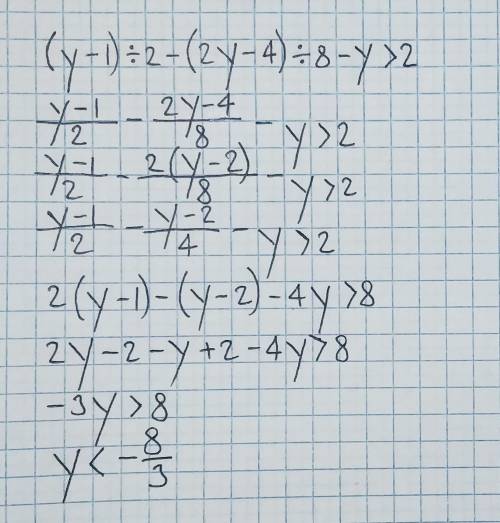 (y-1)÷2-(2y-4)÷8-y>2
y-1/2 - 2y-4/8 - y>2
y-1/2 - 2(y-2)/8 - y>2
y-1/2 - y-2/4 - y>2
2(y-1)-(y-2)-4y>8
2y-2-y+2-4y>8
-3y>8
y<-8/3